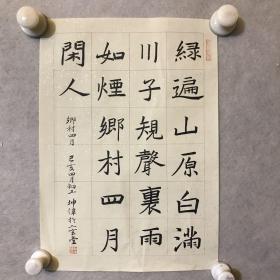 綠遍山原白滿
川子規聲裏雨
如煙鄉村四月
閑人
鄉村四月 己亥四月初五 坤偉於堂